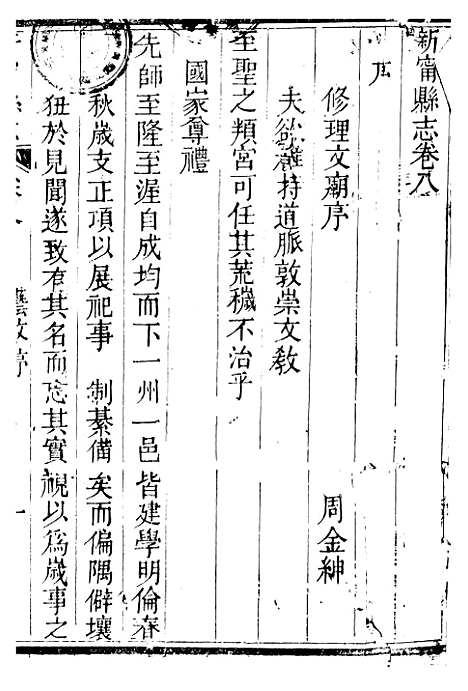 新甯縣志卷八
序
修理文廟序
周金紳
夫欲維持道脈敦崇文教
至聖之頖宮可任其荒穢不治乎
國家尊禮
先師至隆至渥自成均而下一州一邑皆建學明倫春
秋歲支正項以展祀事 制綦備矣而偏隅僻壤
狃於見聞遂致有其名而忘其實視以為歲事之
藝文序
一